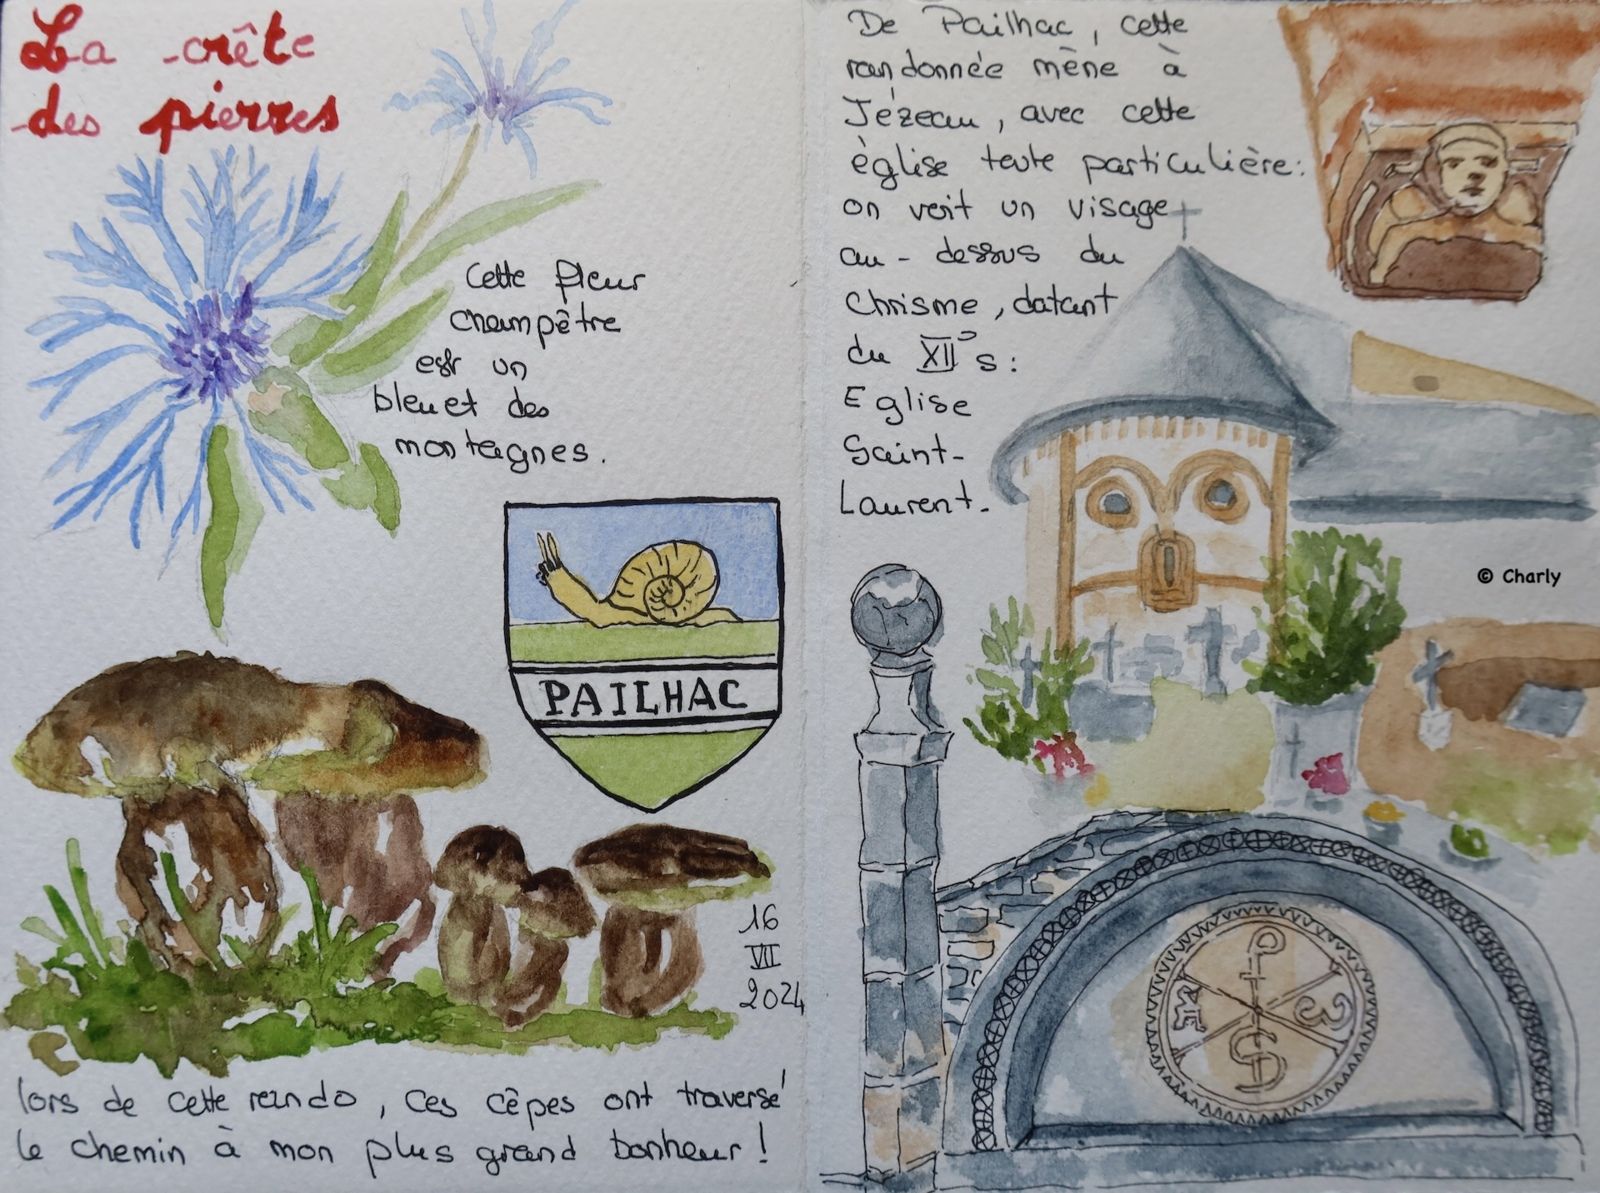 La crête
des pierres
Cette fleur
champêtre
est un
bleuet des
montagnes.
PAILHAC
16
VII
2024
lors de cette rando, ces cêpes ont traversé
le chemin à mon plus grand bonheur !
De Pailhac, cette
randonnée mène à
Jézeau, avec cette
église toute particulière:
on voit un visage
au-dessus du
Chrisme, datant
du XII° s:
Eglise
Saint-
Laurent.
© Charly